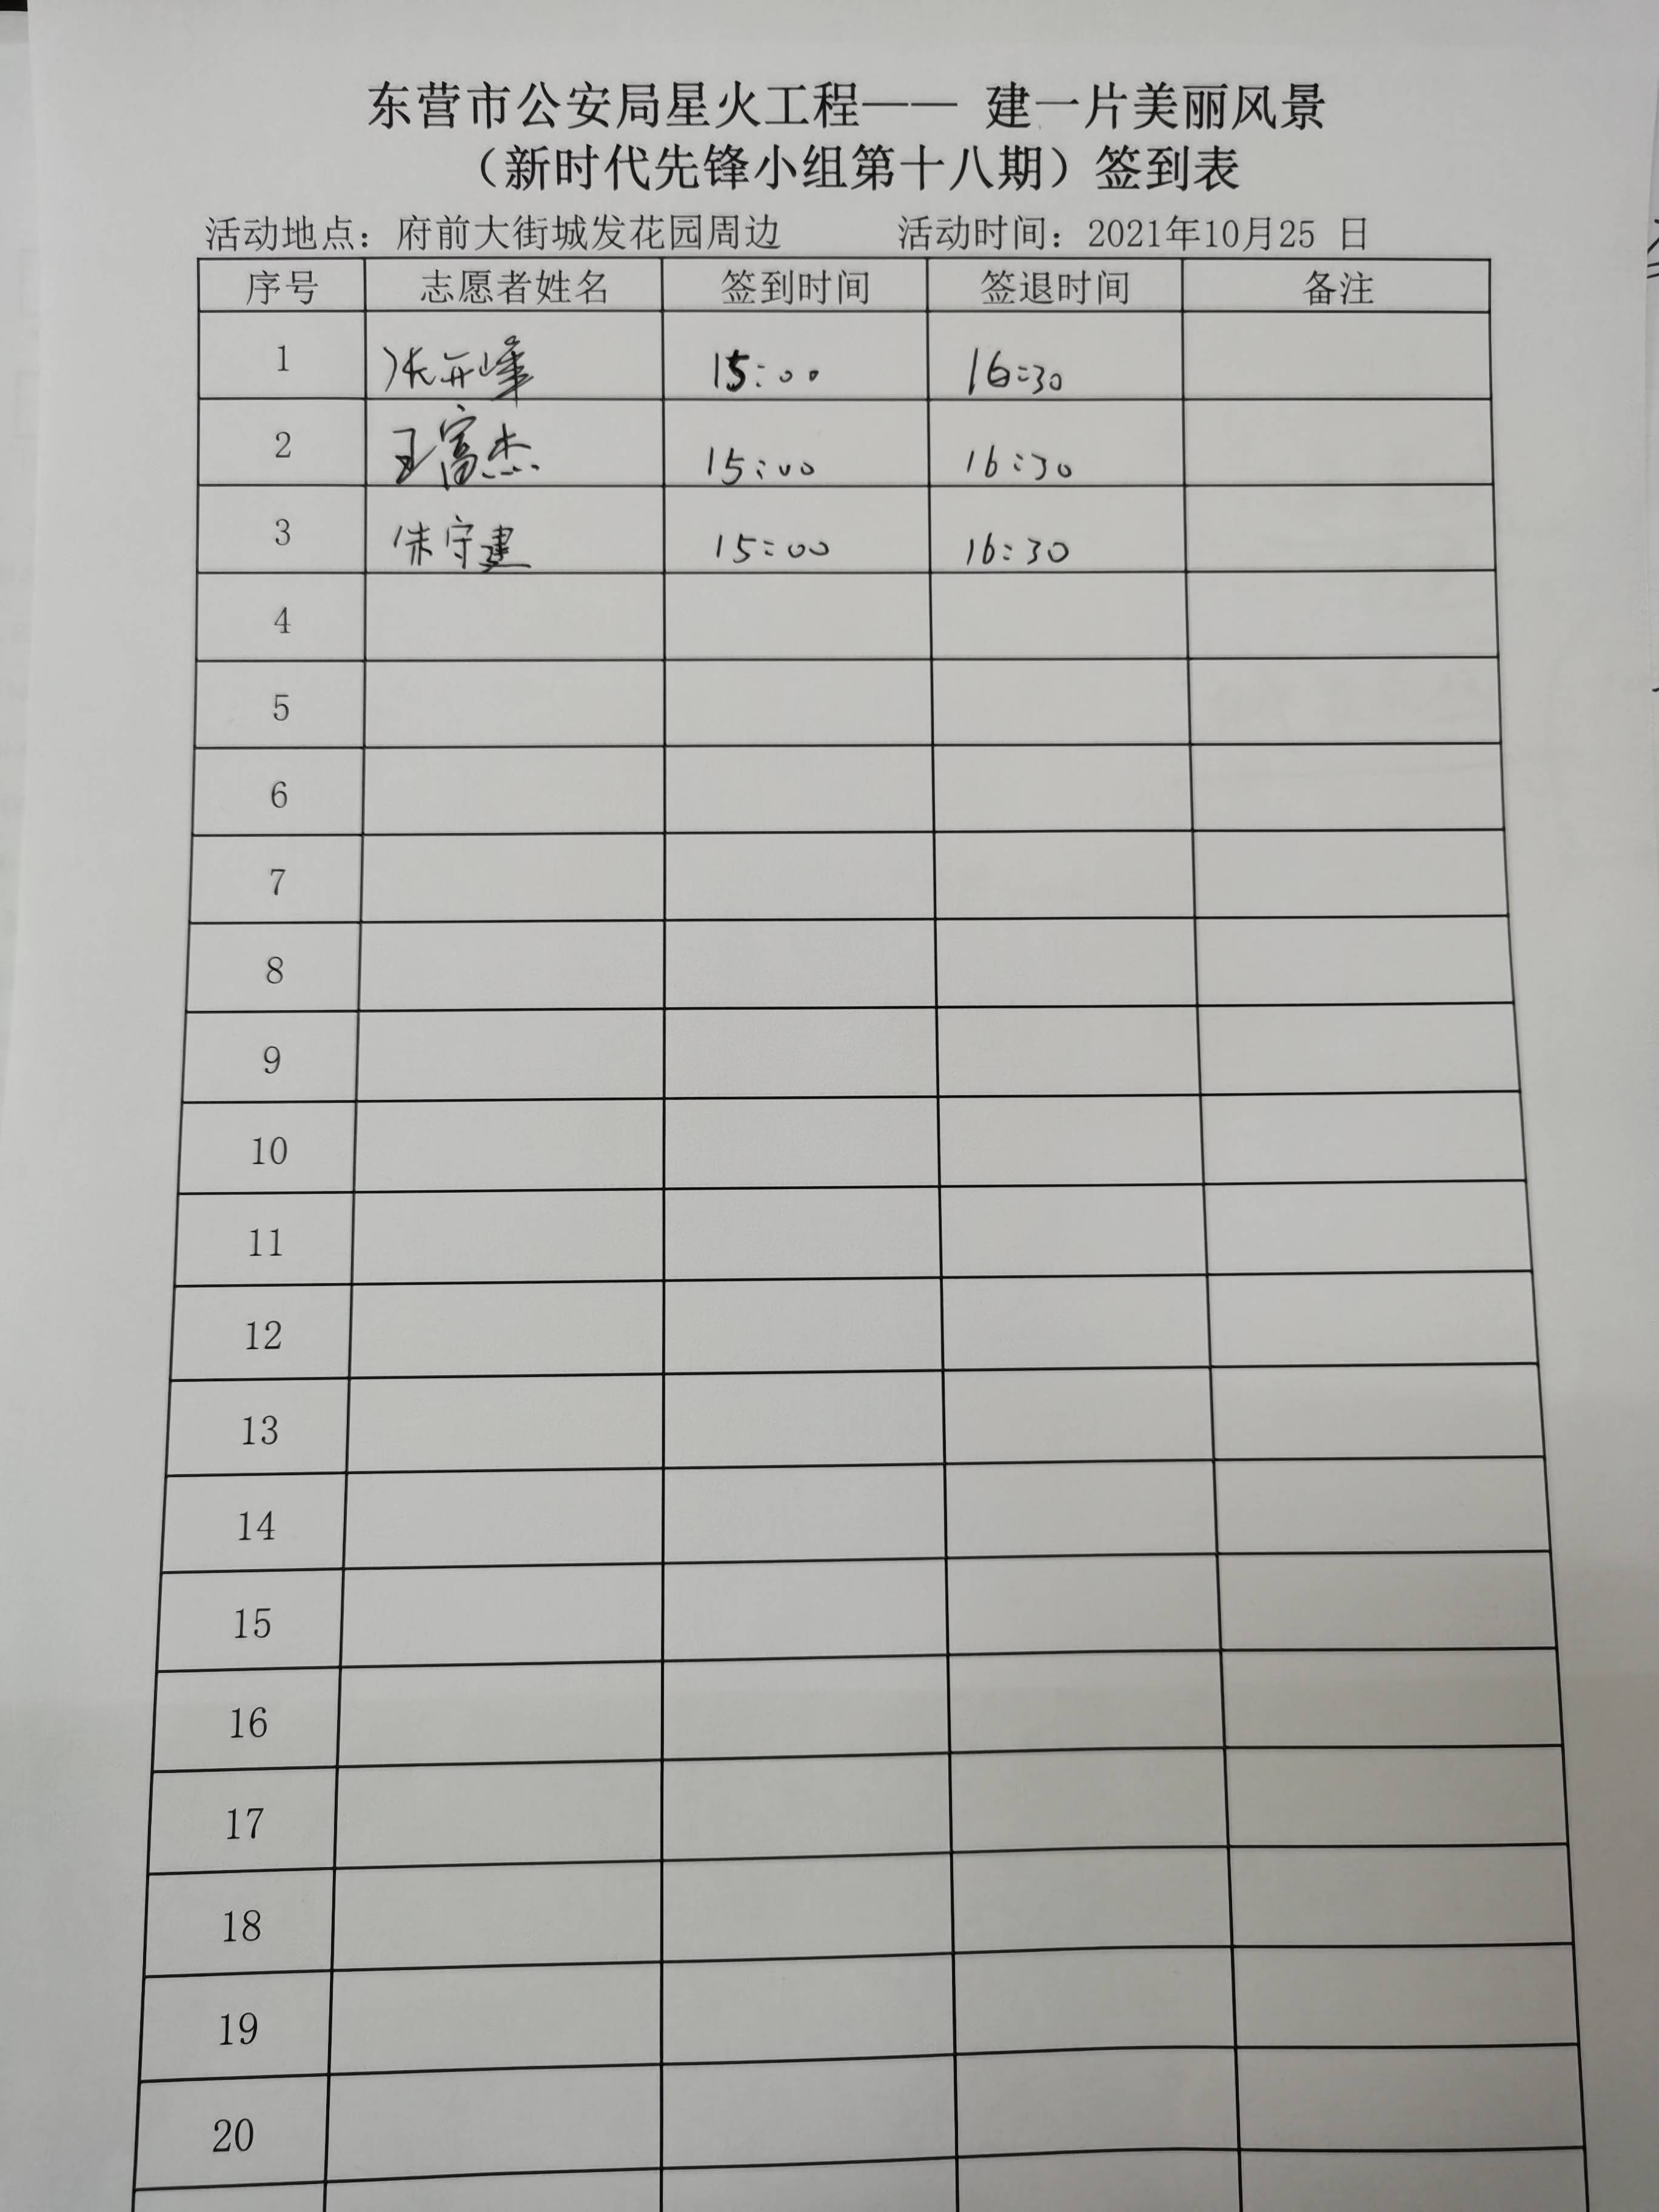 东营市公安局星火工程—— 建一片美丽风景
（新时代先锋小组第十八期）签到表
活动地点：府前大街城发花园周边 活动时间：2021年10月25 日
序号 志愿者姓名 签到时间 签退时间 备注
1 张开峰 15:00 16:30
2 王富杰 15:00 16:30
3 朱守建 15:00 16:30
4
5
6
7
8
9
10
11
12
13
14
15
16
17
18
19
20